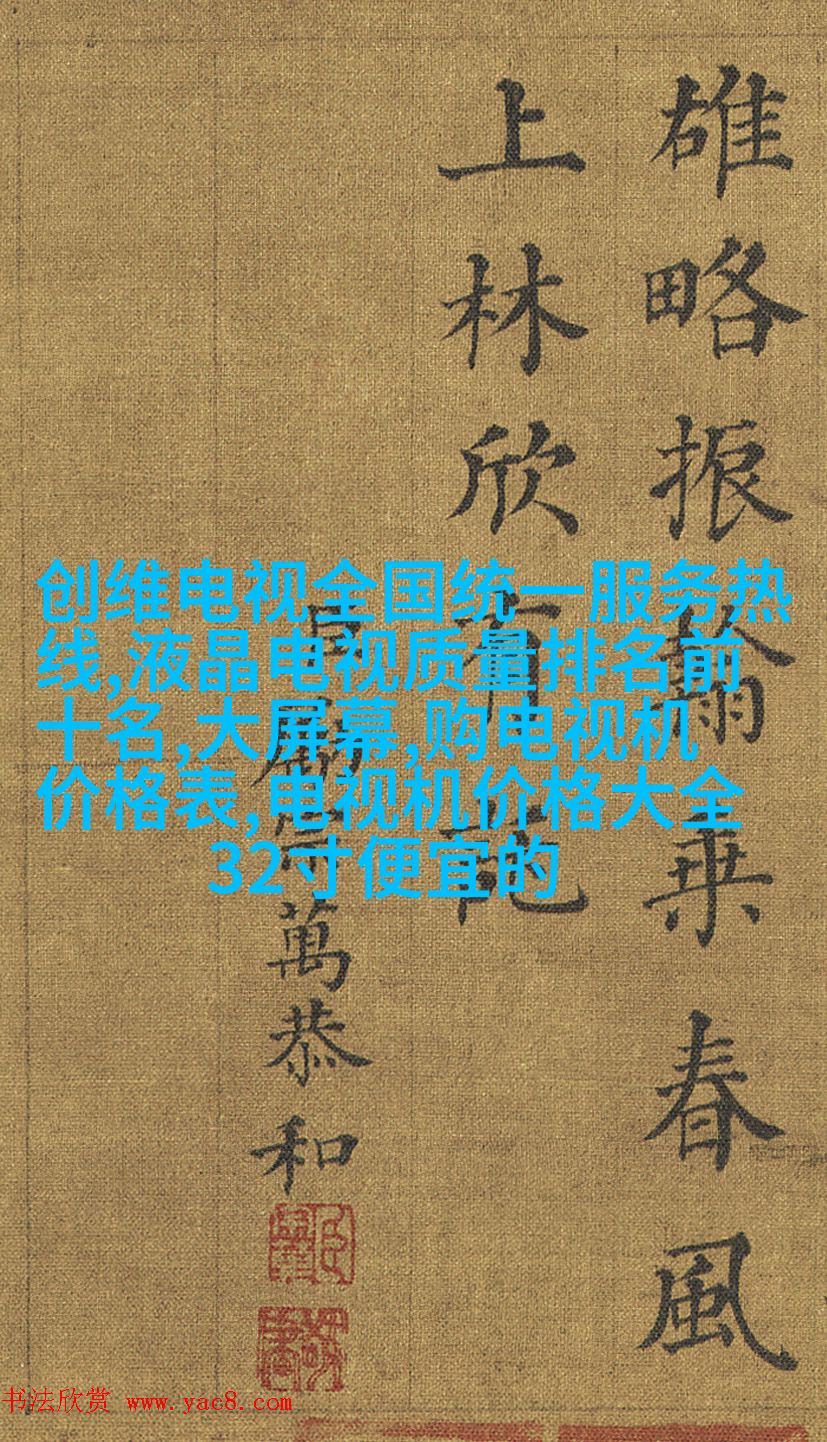 雄略振乘春風
上林欣有
萬恭和
创维电视全国统一服务热
线,液晶电视质量排名前
十名,大屏幕,购电视机
价格表,电视机价格大全
32寸便宜的
书法欣赏 www.yac8.com